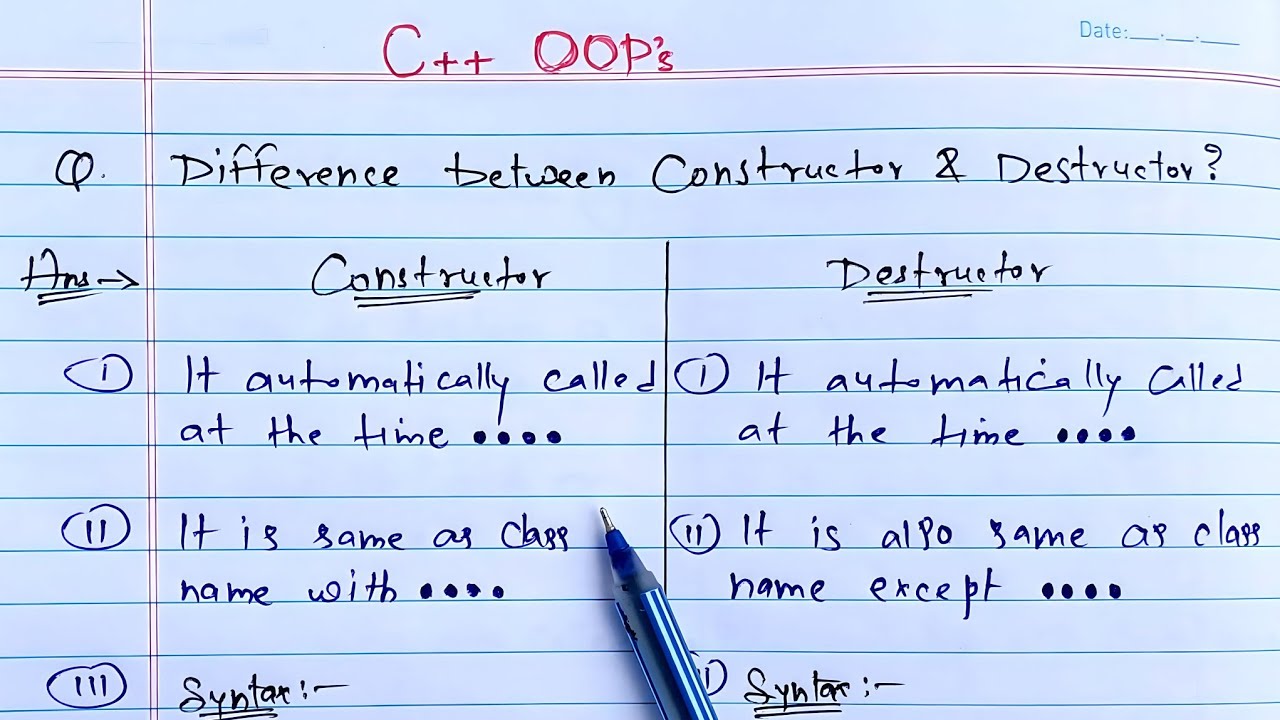 C++ OOP's
Date:__.__.__
Q. Difference between Constructor & Destructor?
Ans→ Constructor Destructor
(i) It automatically called (i) It automatically called
at the time •••• at the time ••••
(ii) It is same as class (ii) It is also same as class
name with •••• name except ••••
(iii) Syntax:- Syntax:-